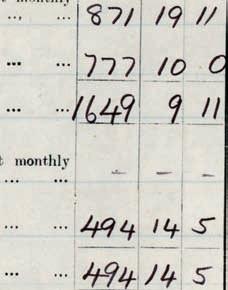 monthly
... ... 871 19 11
... ... 777 10 0
... ... 1649 9 11
t monthly
... ... - - -
... ... 494 14 5
... ... 494 14 5